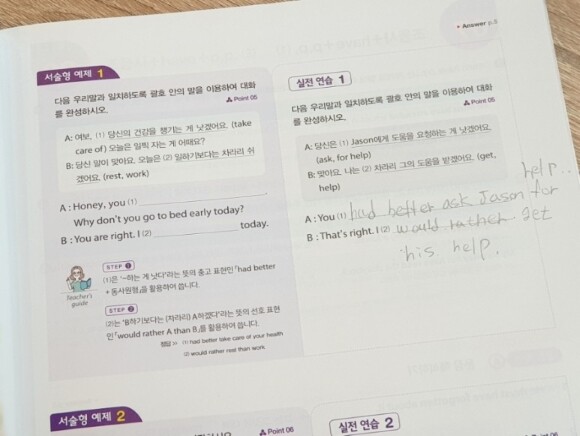 Answer p.3
서술형 예제 1
다음 우리말과 일치하도록 괄호 안의 말을 이용하여 대화
를 완성하시오.
Point 05
A: 여보, (1) 당신의 건강을 챙기는 게 낫겠어요. (take
care of) 오늘은 일찍 자는 게 어때요?
B: 당신 말이 맞아요. 오늘은 (2) 일하기보다는 차라리 쉬
겠어요. (rest, work)
A : Honey, you (1)
Why don't you go to bed early today?
B : You are right. I (2) today.
Teacher's
guide
STEP 1
(1)은 '~하는 게 낫다'라는 뜻의 충고 표현인 「had better
+ 동사원형」을 활용하여 씁니다.
STEP 2
(2)는 'B하기보다는 (차라리) A하겠다'라는 뜻의 선호 표현
인 「would rather A than B」를 활용하여 씁니다.
정답 >> (1) had better take care of your health
(2) would rather rest than work
실전 연습 1
다음 우리말과 일치하도록 괄호 안의 말을 이용하여 대화
를 완성하시오.
Point 05
A: 당신은 (1) Jason에게 도움을 요청하는 게 낫겠어요.
(ask, for help)
B: 맞아요. 나는 (2) 차라리 그의 도움을 받겠어요. (get,
help)
A : You (1) had better ask Jason for help.
B : That's right. I (2) would rather get
his help.
서술형 예제 2
Point 06
실전 연습 2